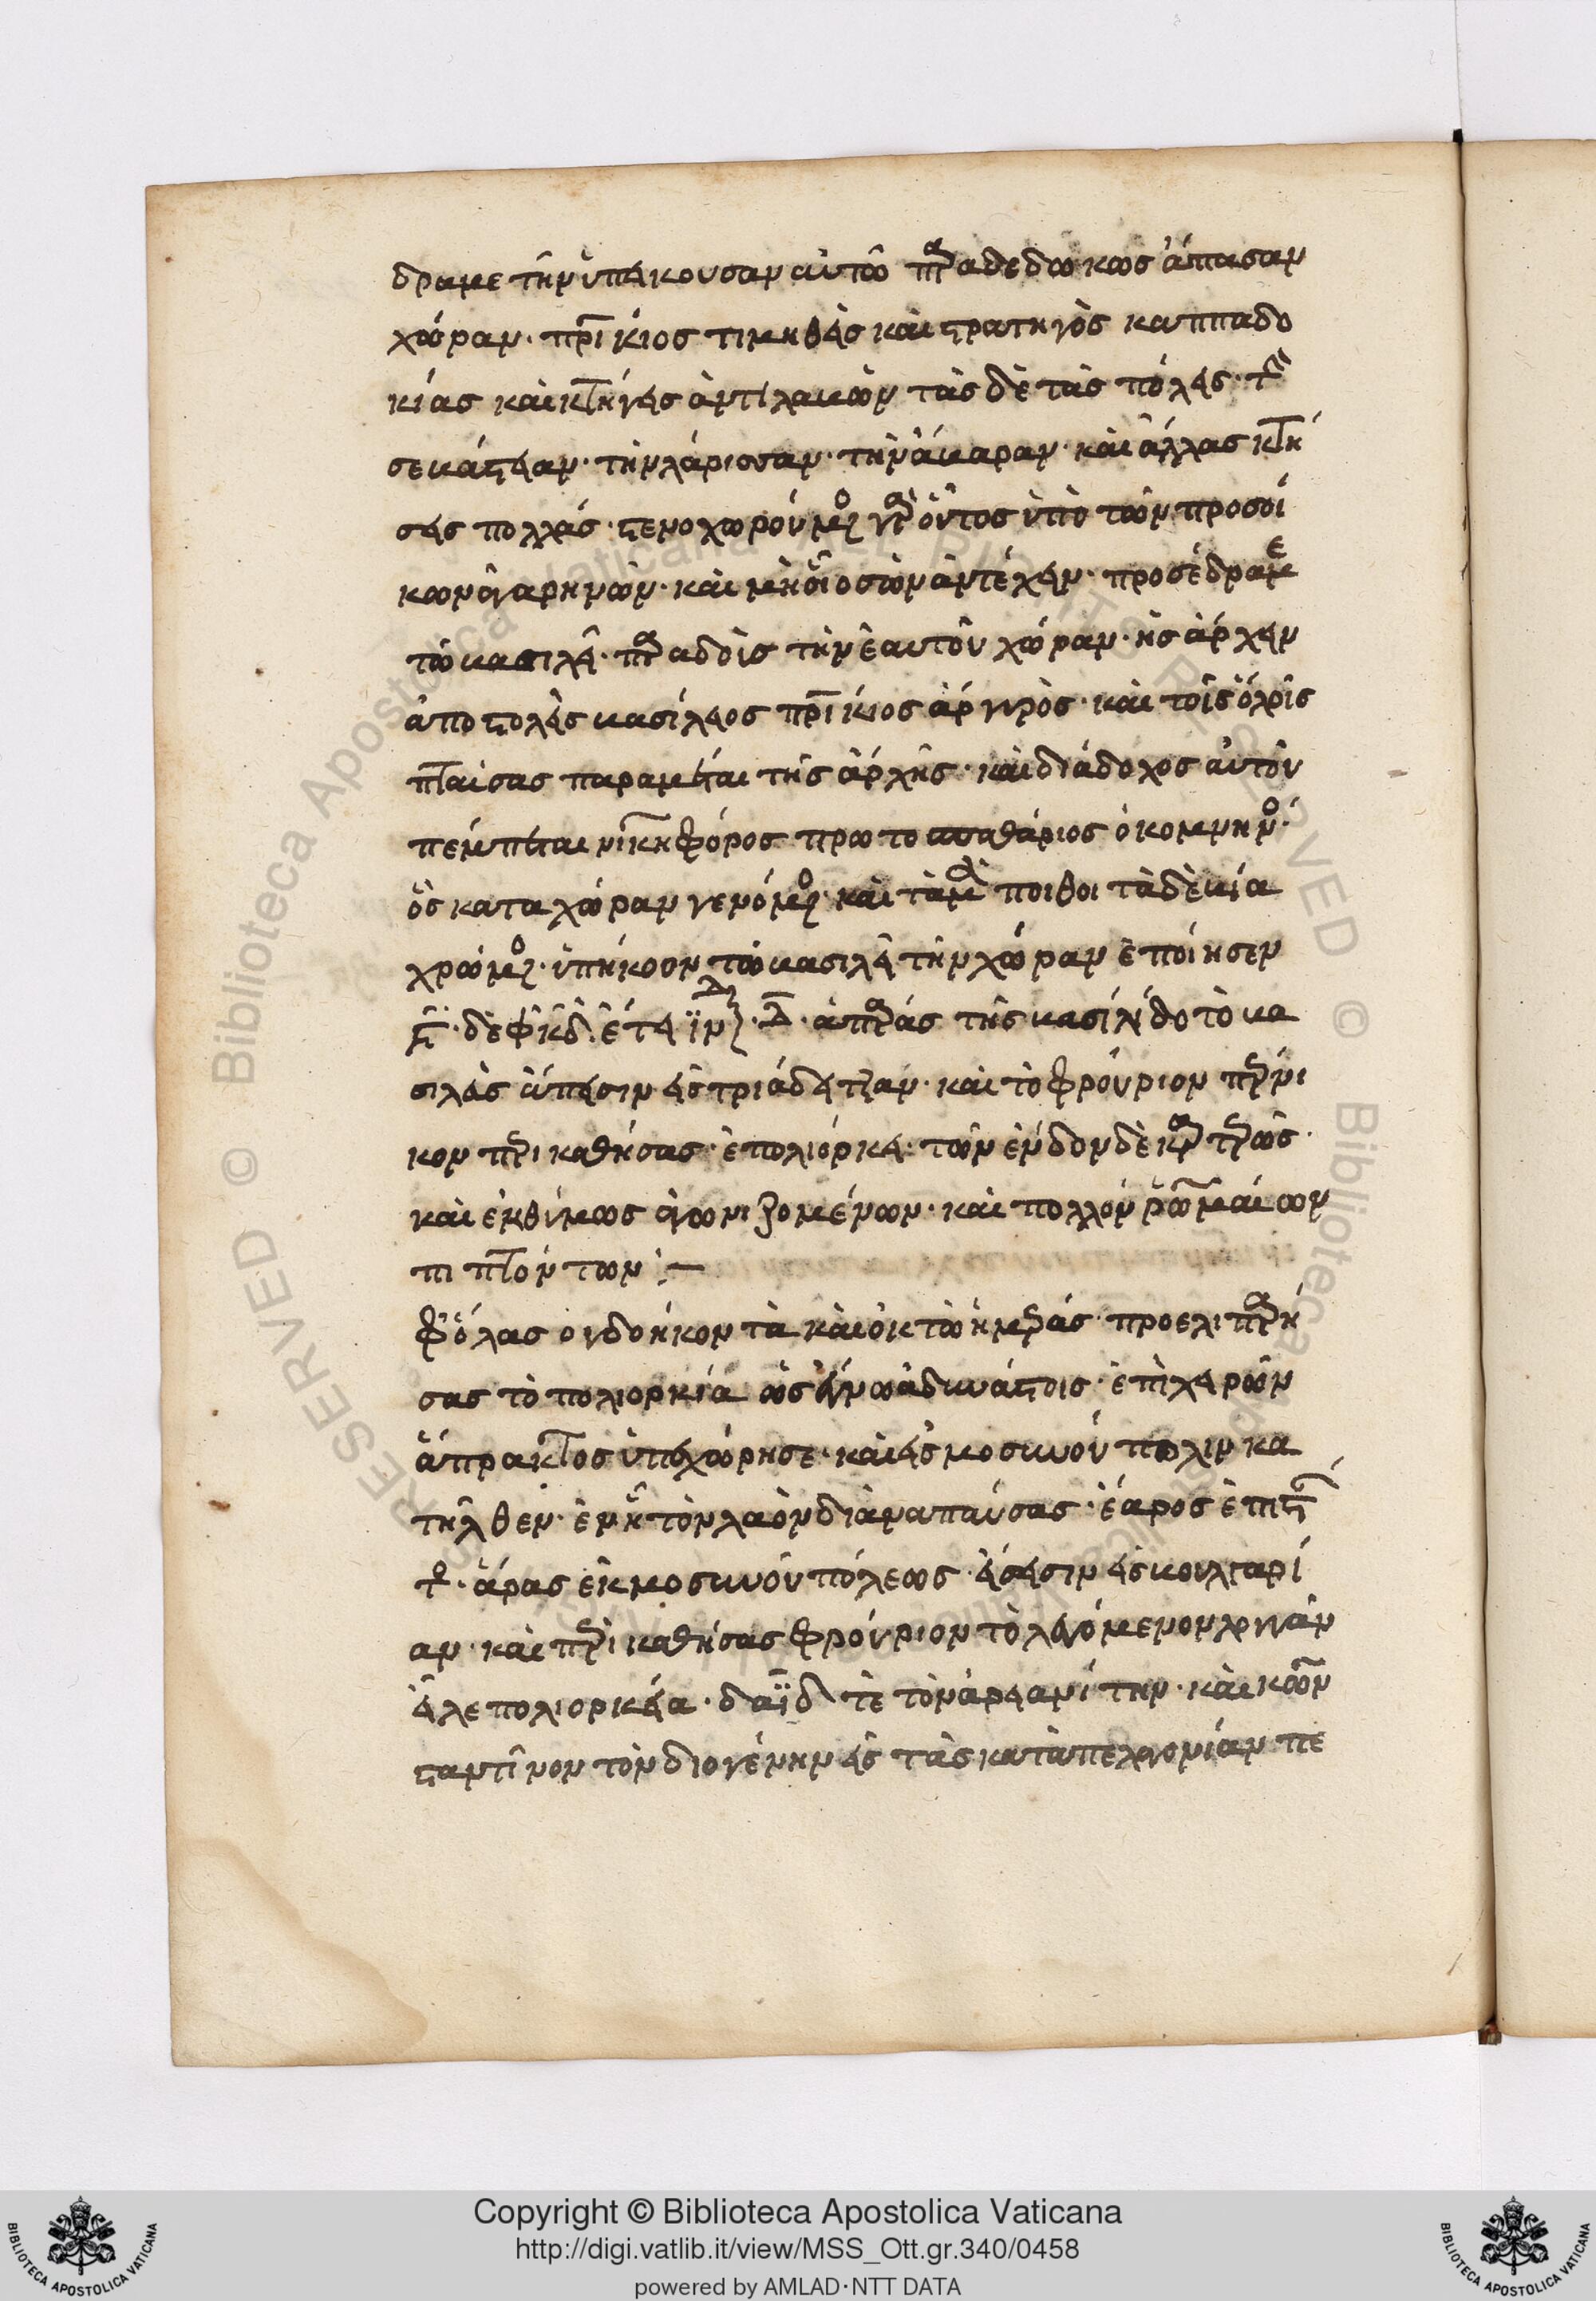 δραμε τὴν ὑπείκουσαν αὐτῶ παραδεδωκὼς ἅπασαν
χώραν· πρίκιος τιμηθεὶς καὶ στρατηγὸς καππαδο
κίας καὶ κτήνεις ἀντιλαβὼν τάς δε τὰς πόλεις· τὴν
σεβάστειαν· τὴν λάρισσαν· τὴν ἄβαραν· καὶ ἄλλας κτή
σεις πολλάς· στενοχωρούμενος γὰρ οὗτος ὑπὸ τῶν προσοί
κων ἀγαρηνῶν· καὶ μὴ οἷος τ' ὢν ἀντέχειν· προσέδραμε
τῶ βασιλεῖ· παραδοὺς τὴν ἑαυτοῦ χώραν· ἧς ἄρχειν
ἀποστολεὶς βασίλεος πρίκιος ἀργυρὸς· καὶ τοῖς ὅλοις
πταίσας παραμεῖται τῆς ἀρχῆς· καὶ διάδοχος αὐτοῦ
πέμπεται νικηφόρος πρωτοσπαθάριος ὁ κομνηνός·
ὃς κατα χώραν γενόμενος· καὶ τὰ μὲν ποιθοῖ τὰ δὲ βία
χρώμενος· ὑπήκοον τῶ βασιλεῖ τὴν χώραν ἐποίησεν
δεφκδ· ἔτει ἀπάρας τῆς βασιλίδο τὸ βα
σιλεὺς ἄπεισιν εἰς τριάδειτζαν· καὶ τὸ φρούριον πέρνι
κον περικαθήσας· ἐπολιόρκει· τῶν ἔνδον δὲ καρτερῶς·
καὶ εὐθύμως ἀγωνιζομένων· καὶ πολλὸν ῥωμαίων
πιπτόντων :—
φθόλας ογδοήκοντα καὶ ὀκτὼ ἡμέρας προελιπαρή
σας τὸ πολιορκία ὡς ἔγνω ἀδυνάστοις· ἐπιχειρῶν
ἄπρακτος ὑπεχώρησε· καὶ εἰς μοσυνού πολιν κα
τῆλθεν· ἐν ἧ τὸν λαὸν διαναπαύσας· ἔαρος ἐπιστάν
τος· ἄρας ἐκ μοσυνοῦ πόλεως· εἴσεισιν εἰς βουλγαρί
αν· καὶ περικαθήσας φρούριον τὸ λεγόμενον λογγὰν
εἷλε πολιορκεία· δαϊδ τὲ τὸν ἀρειανίτην· καὶ κων
σταντῖνον τὸν διογένην εἰς τὰς κατὰ πελαγονίαν πε